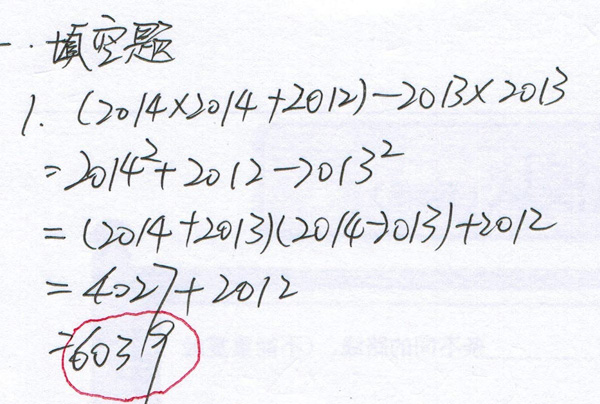 一.填空题
1. (2014×2014+2012)-2013×2013
=2014²+2012-2013²
=(2014+2013)(2014-2013)+2012
=4027+2012
=6039